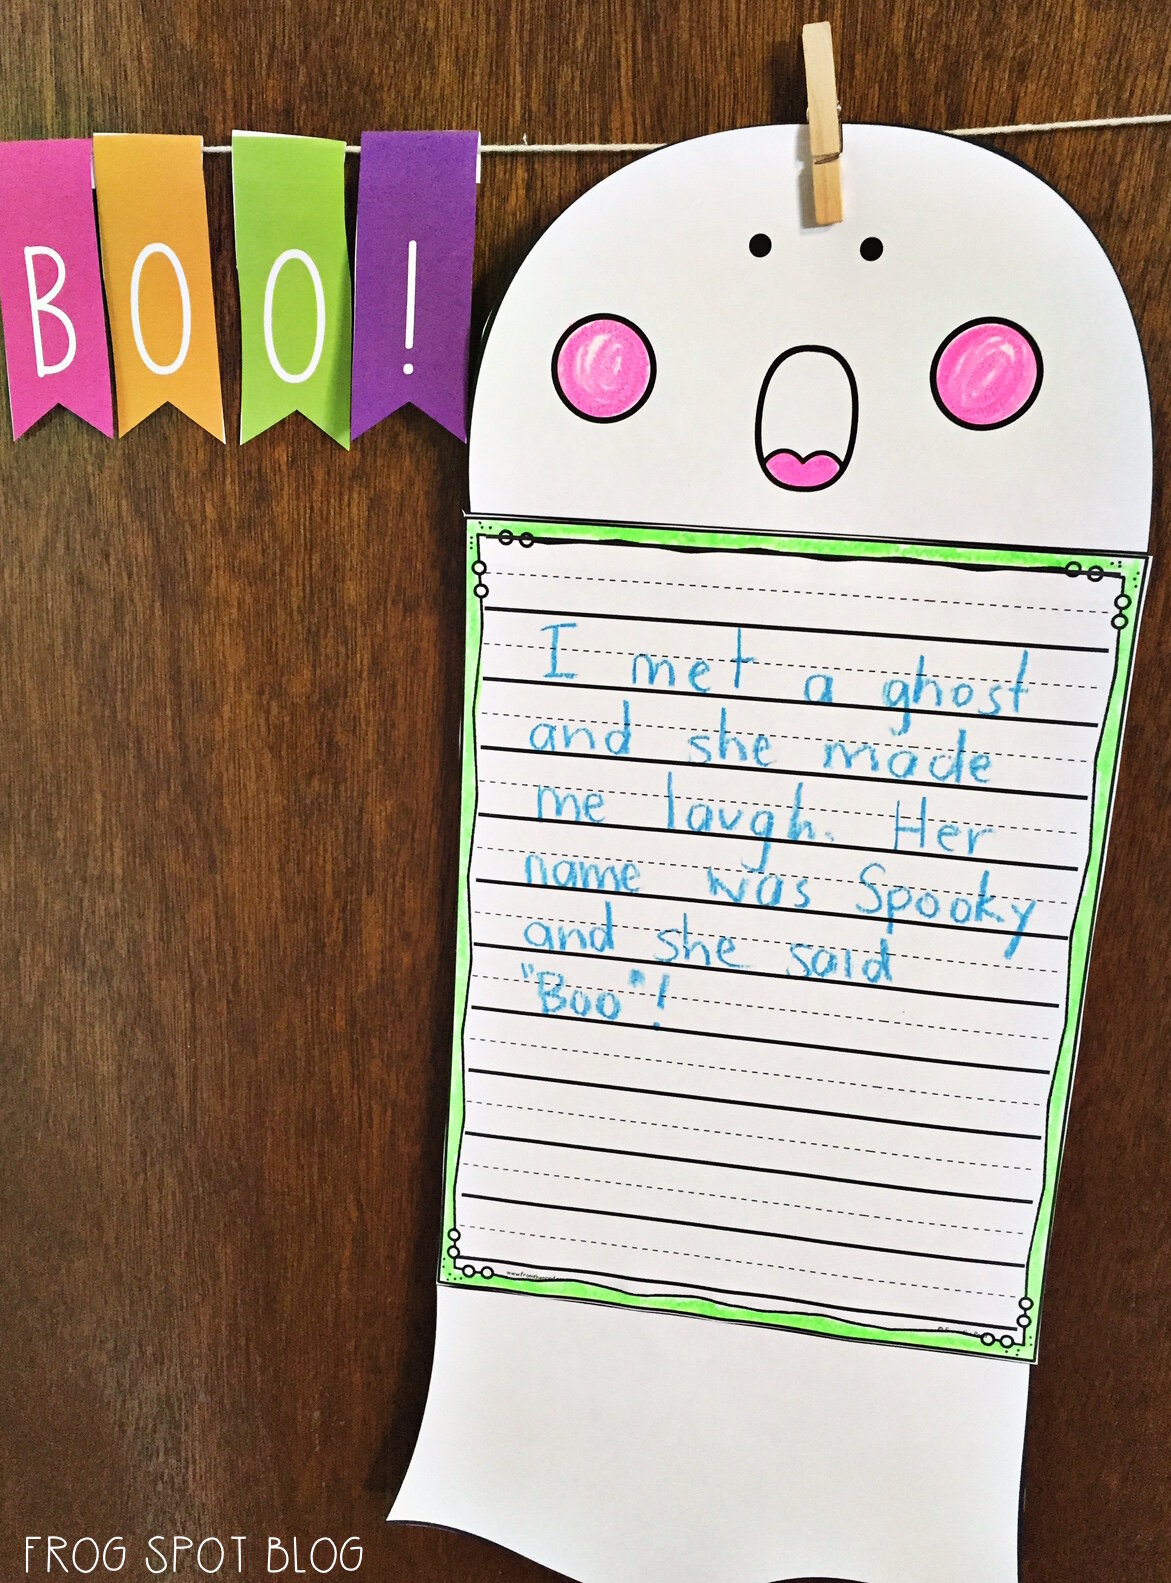 BOO!
I met a ghost
and she made
me laugh. Her
name was Spooky
and she said
"Boo"!
FROG SPOT BLOG